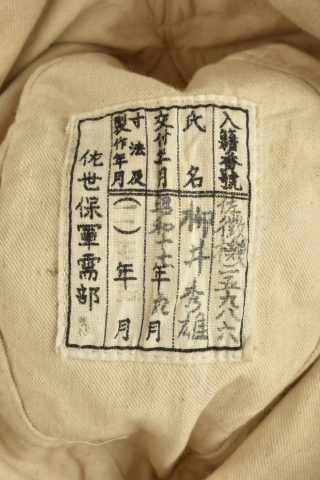 入籍番號 佐徴機二五九八六
氏名 柳井秀雄
交付年月 昭和十七年九月
寸法及製作年月 (一) 年 月
佐世保軍需部